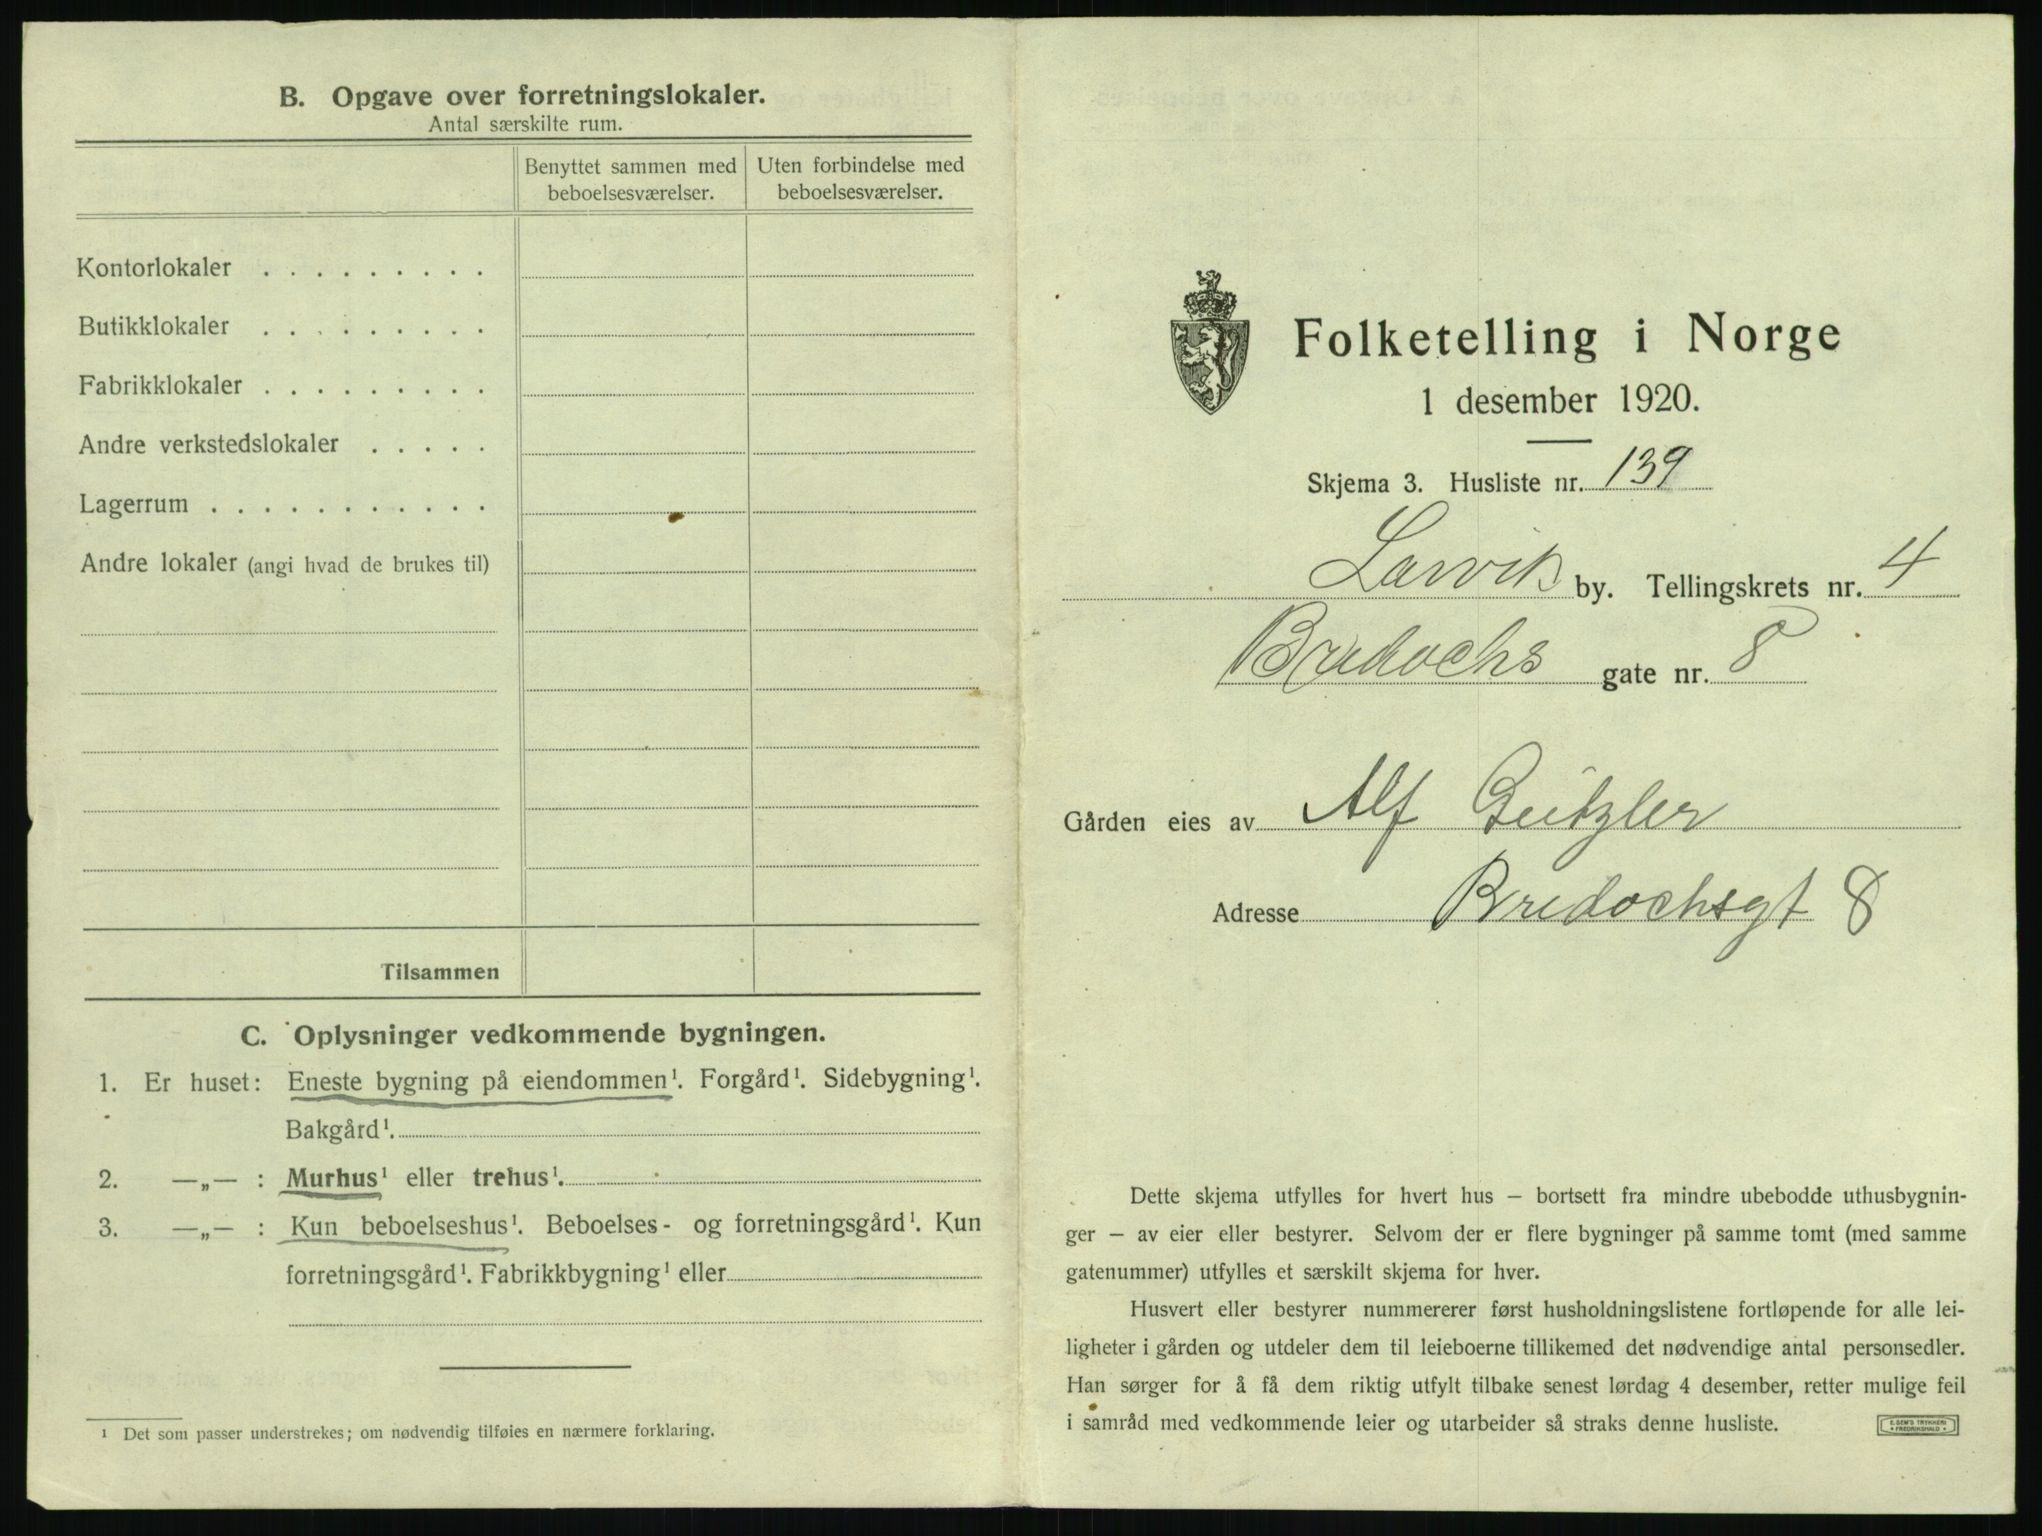 B. Opgave over forretningslokaler.
Antal særskilte rum.
Benyttet sammen med beboelsesværelser.
Uten forbindelse med beboelsesværelser.
Kontorlokaler . . . . . . . . .
Butikklokaler . . . . . . . . .
Fabrikklokaler . . . . . . . . .
Andre verkstedslokaler . . . . .
Lagerrum . . . . . . . . . . .
Andre lokaler (angi hvad de brukes til)
Tilsammen
C. Oplysninger vedkommende bygningen.
1. Er huset: Eneste bygning på eiendommen¹. Forgård¹. Sidebygning¹.
Bakgård¹.
2. —„— : Murhus¹ eller trehus¹.
3. —„— : Kun beboelseshus¹. Beboelses- og forretningsgård¹. Kun
forretningsgård¹. Fabrikkbygning¹ eller
¹ Det som passer understrekes; om nødvendig tilføies en nærmere forklaring.
Folketelling i Norge
1 desember 1920.
Skjema 3. Husliste nr. 139
Larvik by. Tellingskrets nr. 4
Bredochs gate nr. 8
Gården eies av Alf Geitzler
Adresse Bredochsgt 8
Dette skjema utfylles for hvert hus – bortsett fra mindre ubebodde uthusbygnin-
ger – av eier eller bestyrer. Selvom der er flere bygninger på samme tomt (med samme
gatenummer) utfylles et særskilt skjema for hver.
Husvert eller bestyrer nummererer først husholdningslistene fortløpende for alle lei-
ligheter i gården og utdeler dem til leieboerne tillikemed det nødvendige antal personsedler.
Han sørger for å få dem riktig utfylt tilbake senest lørdag 4 desember, retter mulige feil
i samråd med vedkommende leier og utarbeider så straks denne husliste.
E. SEM'S TRYKKERI
• FREDRIKSHALD •